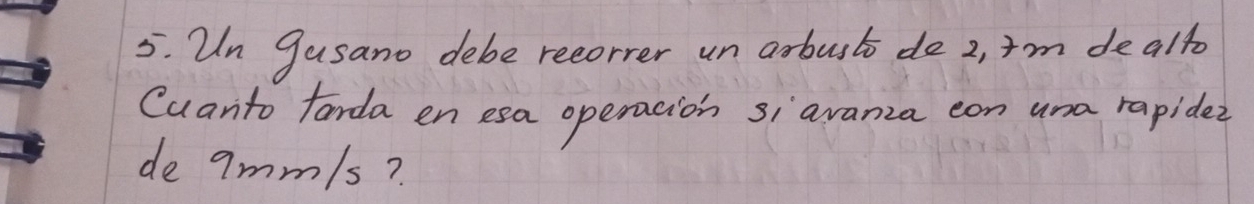 5. Un gusano debe recorrer un arbusto de 2,7m de alto
Cuanto tarda en esa operación si avanza con una rapidez
de 9mm/s?